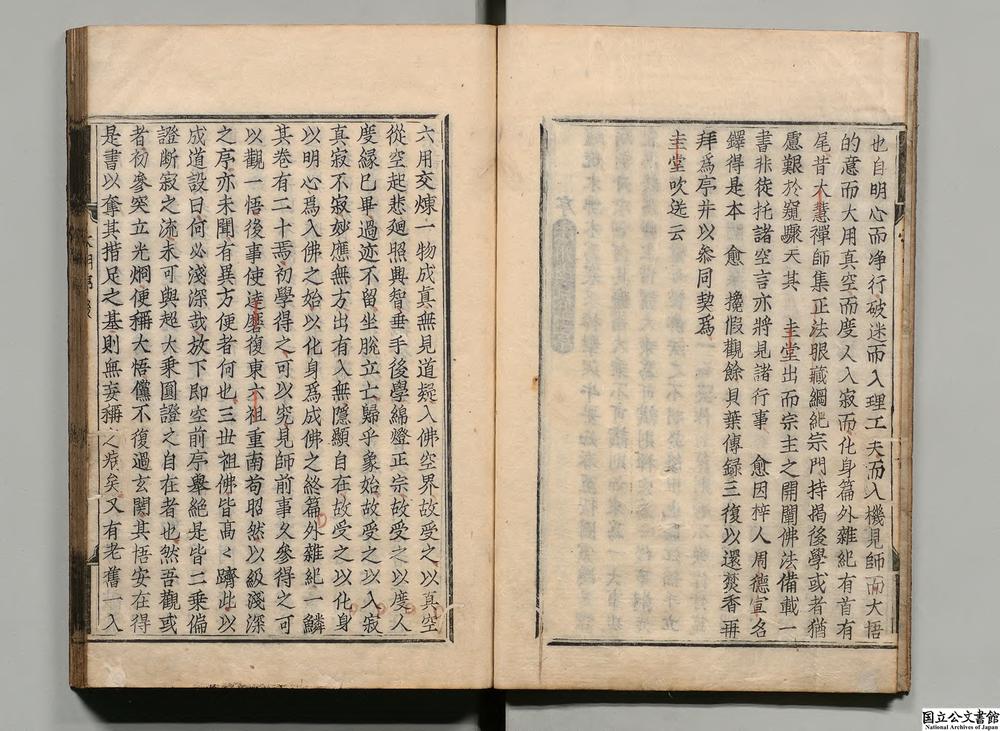 也自明心而净行破迷而入理工夫而入機見師而大悟
的意而大用真空而度人入寂而化身篇外雜紀有首有
尾昔大慧禪師集正法眼藏綱紀宗門持揭後學或者猶
慮艱於窺驟天其 圭堂出而宗主之開闡佛法備載一
書非徒托諸空言亦將見諸行事 愈因梓人周德宣名
鐸得是本 愈 攙假觀餘貝葉傳録三復以還焚香再
拜爲序并以參同契爲
圭堂吹送云
六用交煉一物成真無見道疑入佛空界故受之以真空
從空起悲廻照與智垂手後學綿燈正宗故受之以度人
度緣已畢過迹不留坐脫立亡歸乎象始故受之以入寂
真寂不寂妙應無方出有入無隱顯自在故受之以化身
以明心爲入佛之始以化身爲成佛之終篇外雜紀一鱗
其卷有二十焉初學得之可以究見師前事久參得之可
以觀一悟後事使達磨復東六祖重南苟昭然以級淺深
之序亦未聞有異方便者何也三世祖佛皆髙〻躋此以
成道設曰何必淺深哉放下即空前序舉絶是皆二乗偏
證断寂之流未可與超大乗圓證之自在者也然吾觀或
者初參突立光烱便稱大悟儻不復過玄関其悟安在得
是書以奪其措足之基則無妄稱之病矣又有老舊一入
国立公文書館
National Archives of Japan